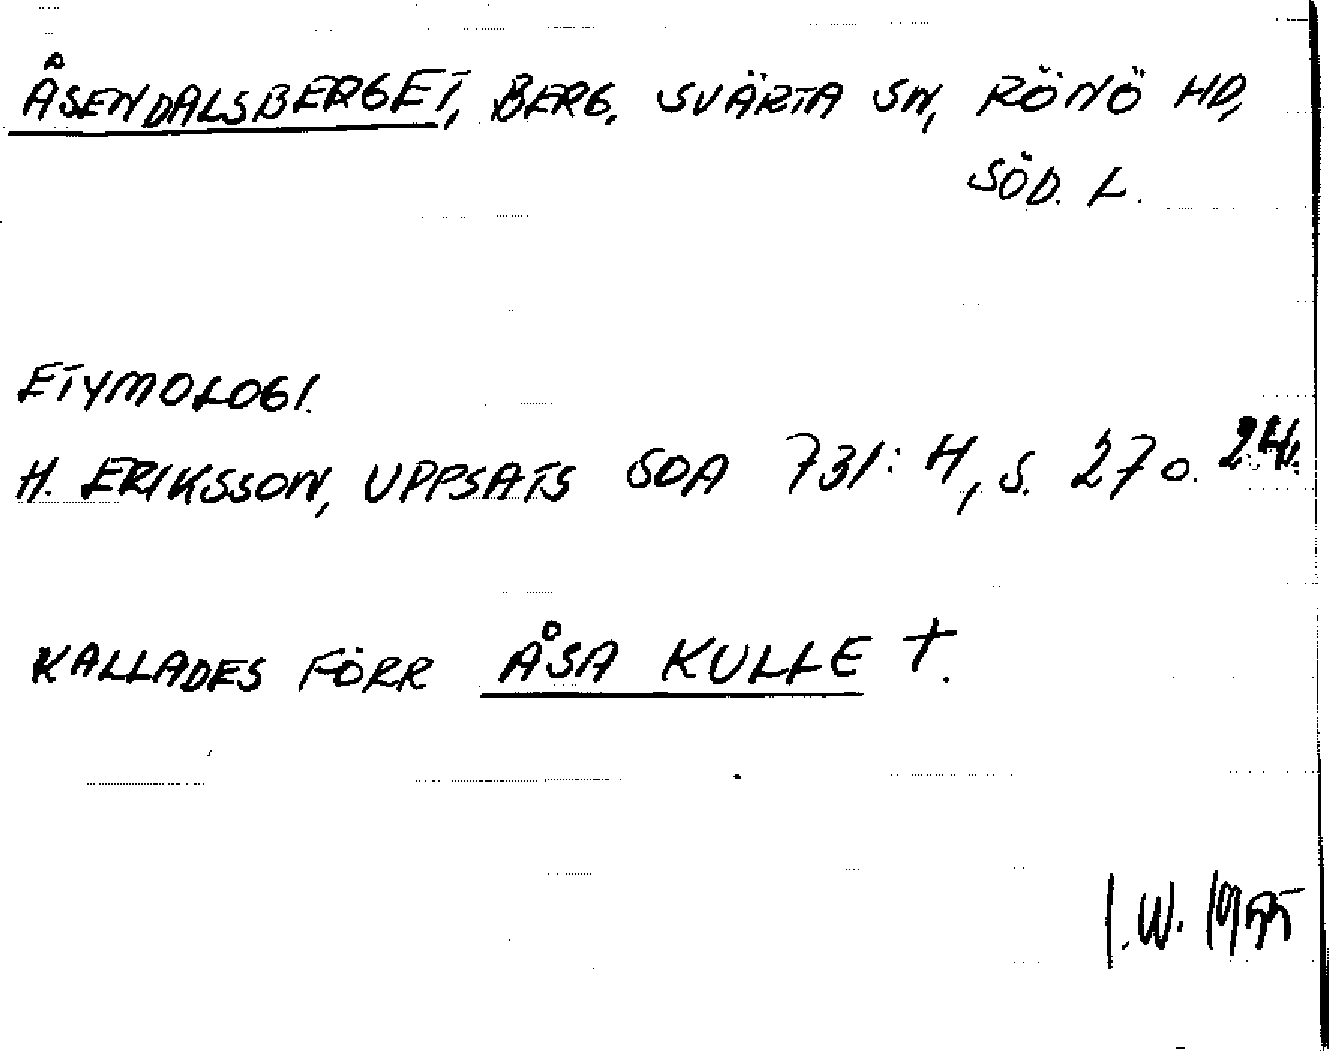 ÅSENDALSBERGET, BERG, SVÄRTA SN, RÖNÖ HD,
SÖD. L.
ETYMOLOGI.
H. ERIKSSON, UPPSATS SOA 731: H, S. 27 o.
KALLADES FÖRR ÅSA KULLE +.
I.W.